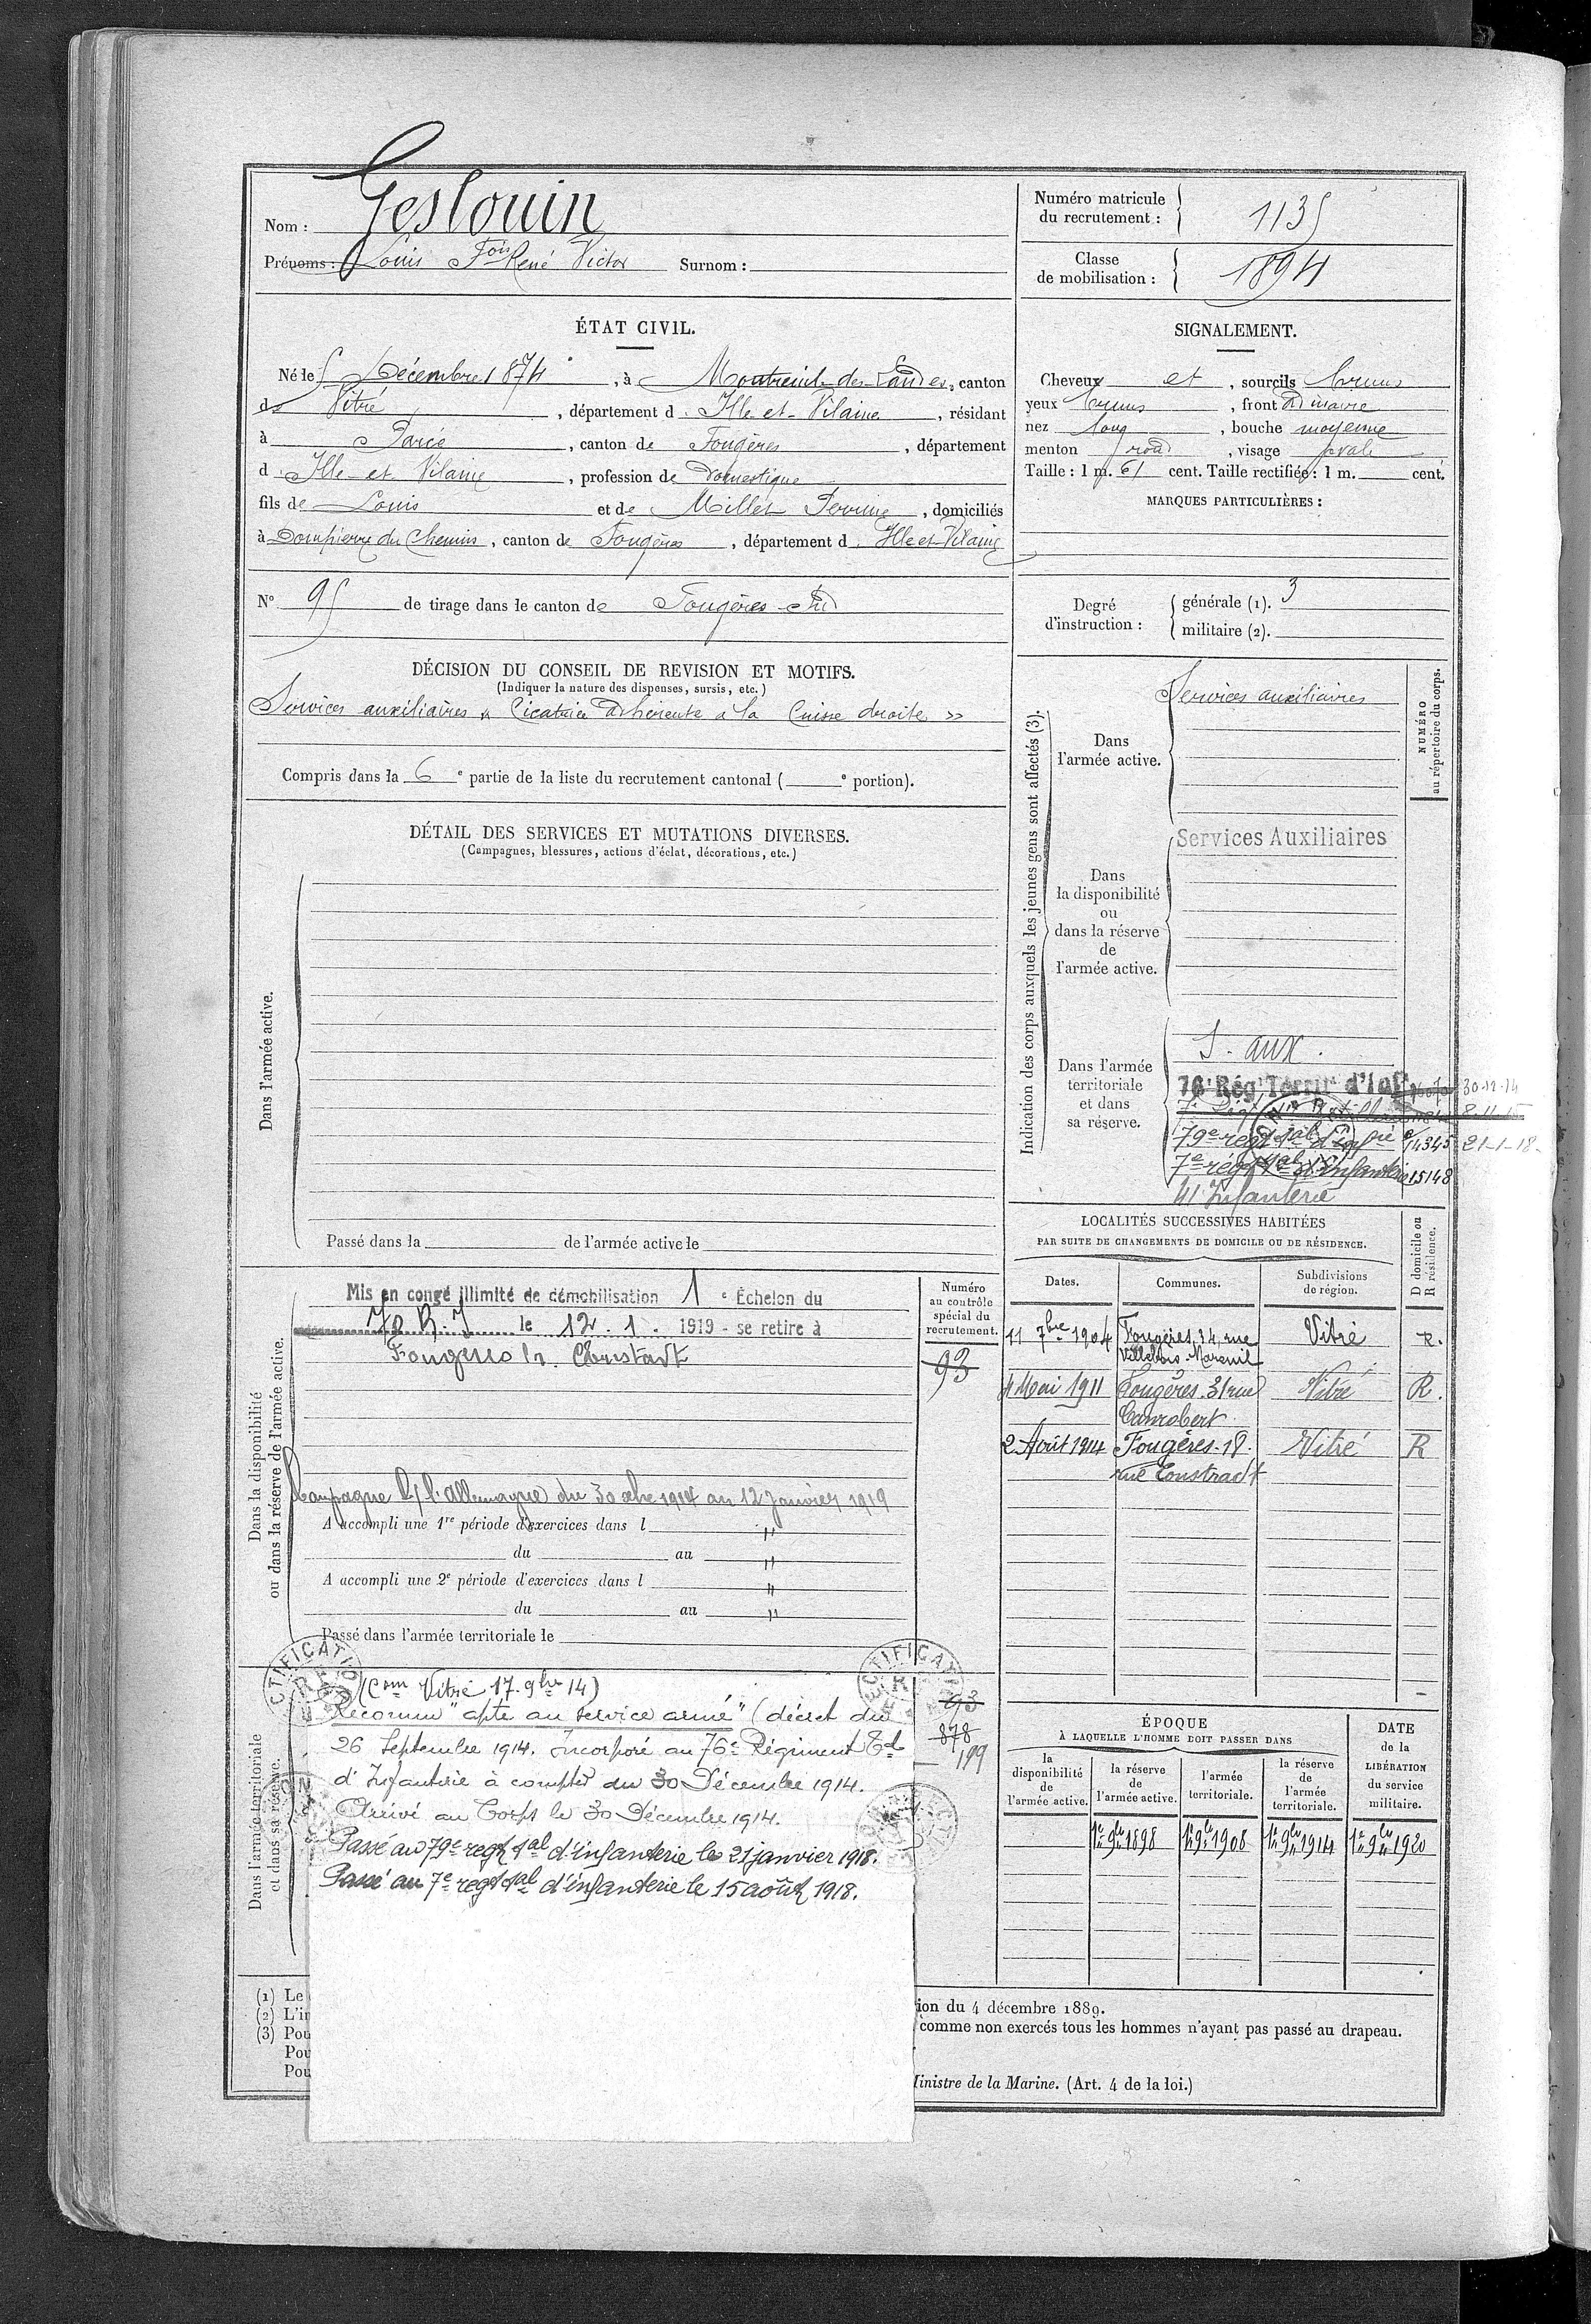 Nom : Geslouin
Prénoms : Louis Fois René Victor Surnom :
Numéro matricule du recrutement : 1135
Classe de mobilisation : 1894
ÉTAT CIVIL.
Né le 5 Décembre 1874, à Montreuil-des-Landes, canton
de Vitré, département d'Ille-et-Vilaine, résidant
à Parcé, canton de Fougères, département
d'Ille-et-Vilaine, profession de Domestique
fils de Louis et de Millet Perrine, domiciliés
à Dompierre du Chemin, canton de Fougères, département d'Ille-et-Vilaine
N° 95 de tirage dans le canton de Fougères Sud
SIGNALEMENT.
Cheveux et, sourcils bruns
yeux bruns, front ordinaire
nez long, bouche moyenne
menton rond, visage ovale
Taille : 1 m. 61 cent. Taille rectifiée : 1 m. cent.
MARQUES PARTICULIÈRES :
Degré d'instruction :
générale (1). 3
militaire (2).
DÉCISION DU CONSEIL DE REVISION ET MOTIFS.
(Indiquer la nature des dispenses, sursis, etc.)
Services auxiliaires « Cicatrice adhérente à la Cuisse droite »
Compris dans la 6e partie de la liste du recrutement cantonal ( e portion).
DÉTAIL DES SERVICES ET MUTATIONS DIVERSES.
(Campagnes, blessures, actions d'éclat, décorations, etc.)
Dans l'armée active.
Passé dans la de l'armée active le
Indication des corps auxquels les jeunes gens sont affectés (3).
NUMÉRO
au répertoire du corps.
Dans
l'armée active.
Services auxiliaires
Dans
la disponibilité
ou
dans la réserve
de
l'armée active.
Services Auxiliaires
Dans l'armée
territoriale
et dans
sa réserve.
S. aux.
76e Régt Territ d'Inf 30-12-14
79e regt tal d'infrie 14345 21-1-18
7e régt tal d'infanterie 15148
41 Infanterie
Dans la disponibilité
ou dans la réserve de l'armée active.
Mis en congé illimité de démobilisation 1e Échelon du
70 R.I le 12.1. 1919 - se retire à
Numéro
au contrôle
spécial du
recrutement.
93
Campagne c/ l'allemagne du 30 xbre 1914 au 12 Janvier 1919
A accompli une 1re période d'exercices dans l "
du au "
A accompli une 2e période d'exercices dans l "
du au "
Passé dans l'armée territoriale le
LOCALITÉS SUCCESSIVES HABITÉES
PAR SUITE DE CHANGEMENTS DE DOMICILE OU DE RÉSIDENCE.
D domicile ou
R résidence.
Dates. Communes. Subdivisions de région.
11 7bre 1904 Fougères, 34, rue Vitré R.
Villebois-Mareuil
4 Mai 1911 Fougères. 31 rue Vitré R.
Canrobert
2 Août 1914 Fougères-18. Vitré R
rue
Dans l'armée territoriale
et dans sa réserve.
(Com Vitré 17. 9bre 14)
Reconnu "apte au service armé" (décret du
26 Septembre 1914. Incorporé au 76e Régiment Td
d'Infanterie à compter du 30 Décembre 1914.
Arrivé au Corps le 30 Décembre 1914.
Passé au 79e regt tal d'infanterie le 21 janvier 1918.
Passé au 7e regt tal d'infanterie le 15 août 1918.
93
878
199
ÉPOQUE
À LAQUELLE L'HOMME DOIT PASSER DANS
DATE
de la
LIBÉRATION
du service
militaire.
la disponibilité de l'armée active.
la réserve de l'armée active.
l'armée territoriale.
la réserve de l'armée territoriale.
1er 9bre 1898 1er 9bre 1908 1er 9bre 1914 1er 9bre 1920
(1) Le
(2) L'in
(3) Pou
Pou
Pou
ion du 4 décembre 1889.
comme non exercés tous les hommes n'ayant pas passé au drapeau.
Ministre de la Marine. (Art. 4 de la loi.)